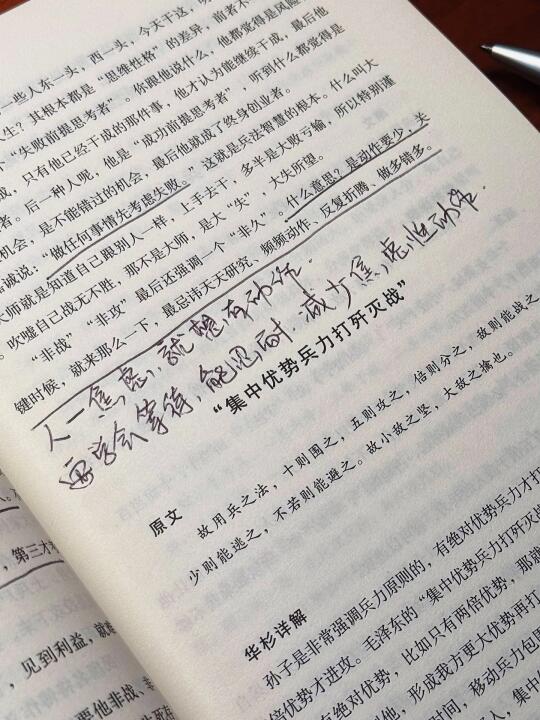 一些人东一头，西一头，今天干这，
生？其根本都是“思维性格”的差异，前者不
“失败前提思考者”。你跟他说什么，他都觉得是风险
成，只有他已经干成的那件事，他才认为能继续干成，最后他
者。后一种人呢，他是“成功前提思考者”，听到什么都觉得是
机会，是不能错过的机会，最后他就成了终身创业者。
诚说：“做任何事情先考虑失败。”这就是兵法智慧的根本。什么叫大
大师就是知道自己跟别人一样，上手去干，多半是大败亏输，所以特别谨
。吹嘘自己战无不胜，那不是大师，是大“失”，大失所望。
“非战”“非攻”最后还强调一个“非久”。什么意思？是动作要少，关
键时候，就来那么一下，最忌讳天天研究、频频动作、反复折腾、做多错多。
人一焦虑，就想有动作.
要学会等待，能忍耐，减少焦虑性动作.
“集中优势兵力打歼灭战”
原文
故用兵之法，十则围之，五则攻之，倍则分之，敌则能战之，
少则能逃之，不若则能避之。故小敌之坚，大敌之擒也。
华杉详解
孙子是非常强调兵力原则的，有绝对优势兵力才打歼灭
倍优势才进攻。毛泽东的“集中优势兵力打歼灭战
有绝对优势，比如只有两倍优势，那就
他，形成我方更大优势再打
时间，移动兵力包围
人，集中
，第三才
，见到利益，就
要他非战、非